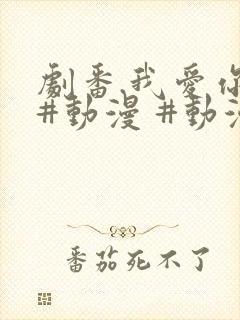 劇番我愛你
#動漫 #動漫
番茄死不了